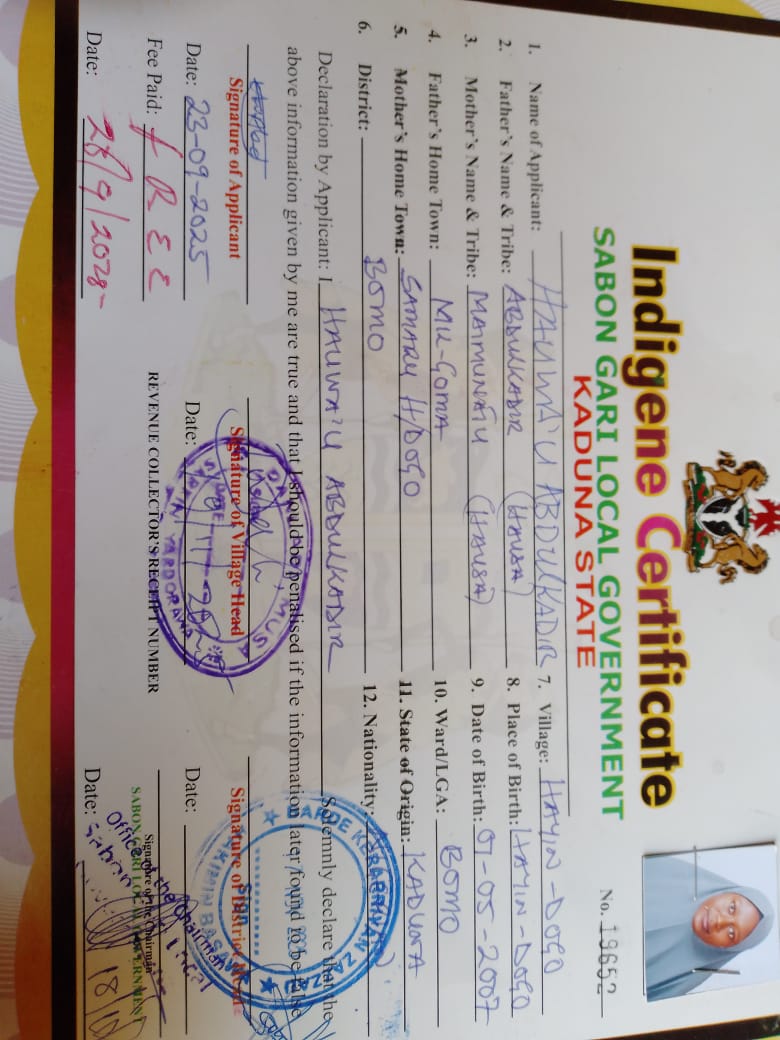 Indigene Certificate
SABON GARI LOCAL GOVERNMENT
KADUNA STATE
No. 19652
1. Name of Applicant: HAUWA'U ABDULKADIR
7. Village: HAYIN-DOGO
2. Father's Name & Tribe: ABDULKADIR (HAUSA)
8. Place of Birth: HAYIN-DOGO
3. Mother's Name & Tribe: MAIMUNATU (HAUSA)
9. Date of Birth: 01-05-2007
4. Father's Home Town: MU-GOMA
10. Ward/LGA: BOMO
5. Mother's Home Town: SAMARU H/DOGO
11. State of Origin: KADUNA
6. District: BOMO
12. Nationality:
Declaration by Applicant: I HAUWA'U ABDULKADIR Solemnly declare that the
above information given by me are true and that I should be penalised if the information later found to be false
Signature of Applicant
Signature of Village Head
Signature of District
Date: 23-09-2025
Date:
Date:
Fee Paid: FREE
REVENUE COLLECTOR'S RECEIPT NUMBER
Signature of the Chairman
SABON GARI LOCAL GOVERNMENT
Office of the Chairman
Date:
Date: